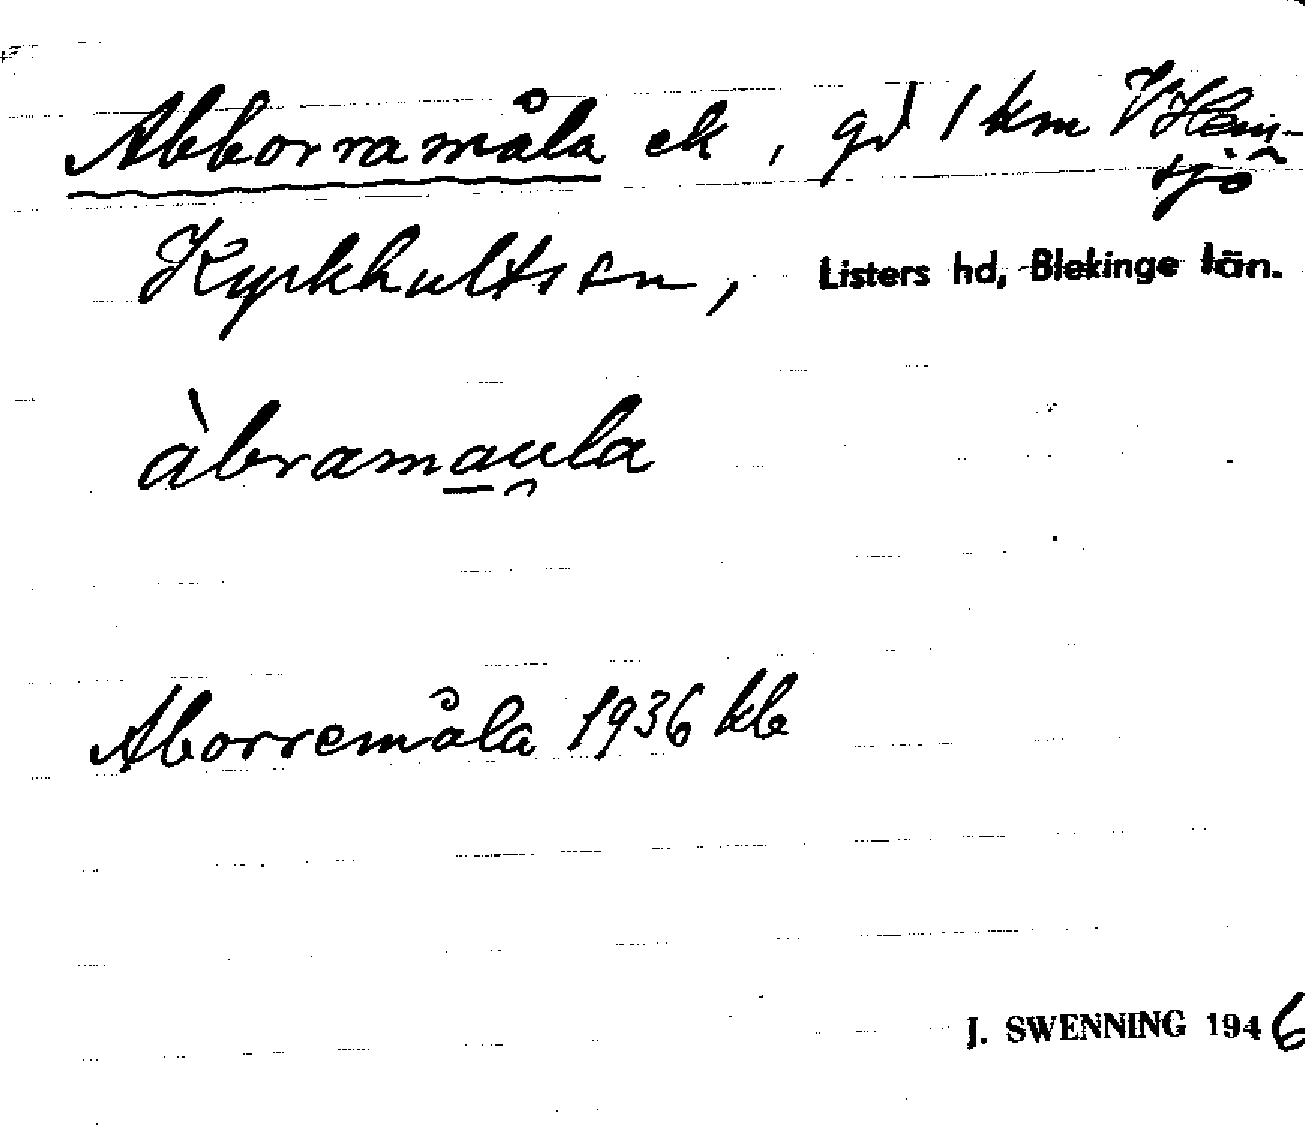 Abborramåla ek, gd 1 km V Hem-
sjö
Kyrkhults sn, Listers hd, Blekinge län.
àbramau̯la
Aborremåla 1936 kb
J. SWENNING 1946